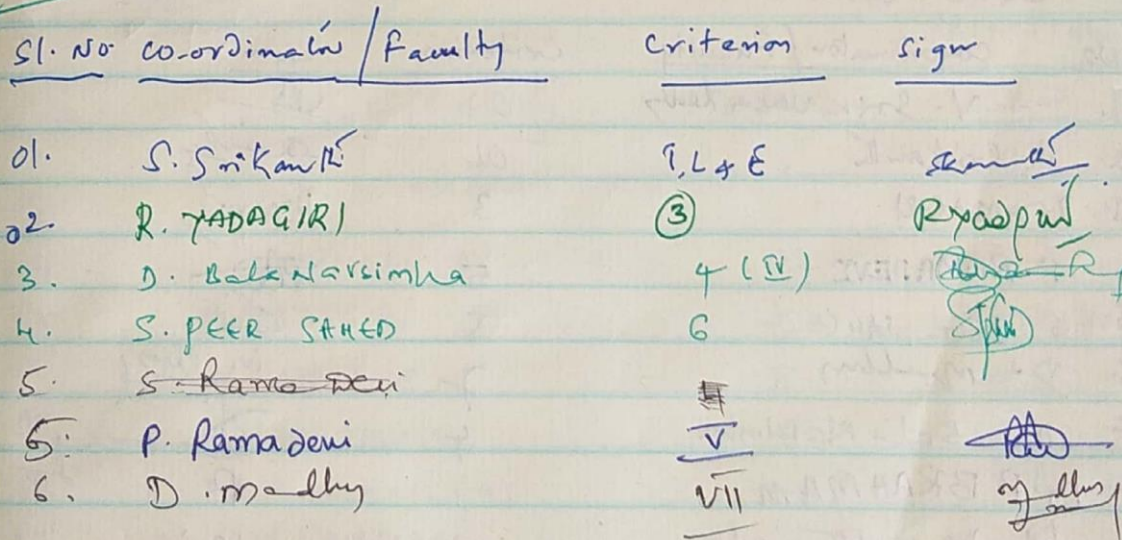 Sl. No Co-ordinator / Faculty Criterion Sign
01. S. Srikanth I, L & E Srikanth
02. R. YADAGIRI 3
3. D. Bala Narsimha 4 (IV)
4. S. PEER SAHED 6
5. S. Rama Devi
5. P. Ramadevi V
6. D. Madhu VII Madhu